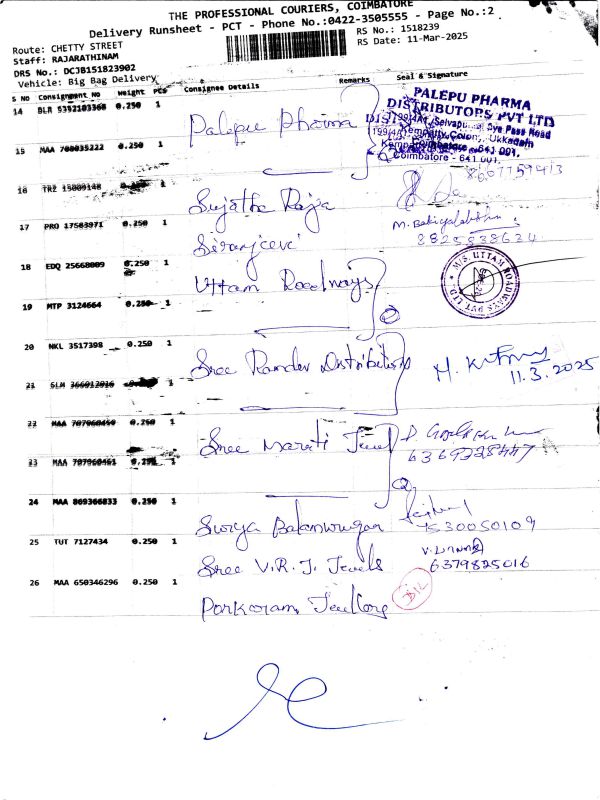 THE PROFESSIONAL COURIERS, COIMBATORE
Delivery Runsheet - PCT - Phone No.:0422-3505555 - Page No.:2
Route: CHETTY STREET
Staff: RAJARATHINAM
DRS No.: DCJB151823902
Vehicle: Big Bag Delivery
RS No.: 1518239
RS Date: 11-Mar-2025
S No Consignment No Weight PCS Consignee Details Remarks Seal & Signature
14 BLR 5392103360 0.250 1 Palepu Pharma
PALEPU PHARMA
DISTRIBUTORS PVT LTD
Coimbatore - 641 001.
15 MAA 700035222 0.250 1
16 TRZ 15009148 1 Sujatha Raja
17 PRO 17503971 0.250 1 Siranjeevi
8825838624
18 EDQ 25668009 0.250 1 Uttam Roadways
M/S. UTTAM ROADWAYS PVT LTD
19 MTP 3124664 0.250 1
20 NKL 3517398 0.250 1 Sree Ramdev Distributors
11.3.2025
21 SLM 1
22 MAA 707960460 0.250 1 Sree Maruti Jewel
6369228447
23 MAA 707960461 0.250 1
24 MAA 869366833 0.250 1 Surya Balamurugan
7530050109
25 TUT 7127434 0.250 1 Sree V.R.J. Jewels
6379825016
26 MAA 650346296 0.250 1 Porkaram Jewllery